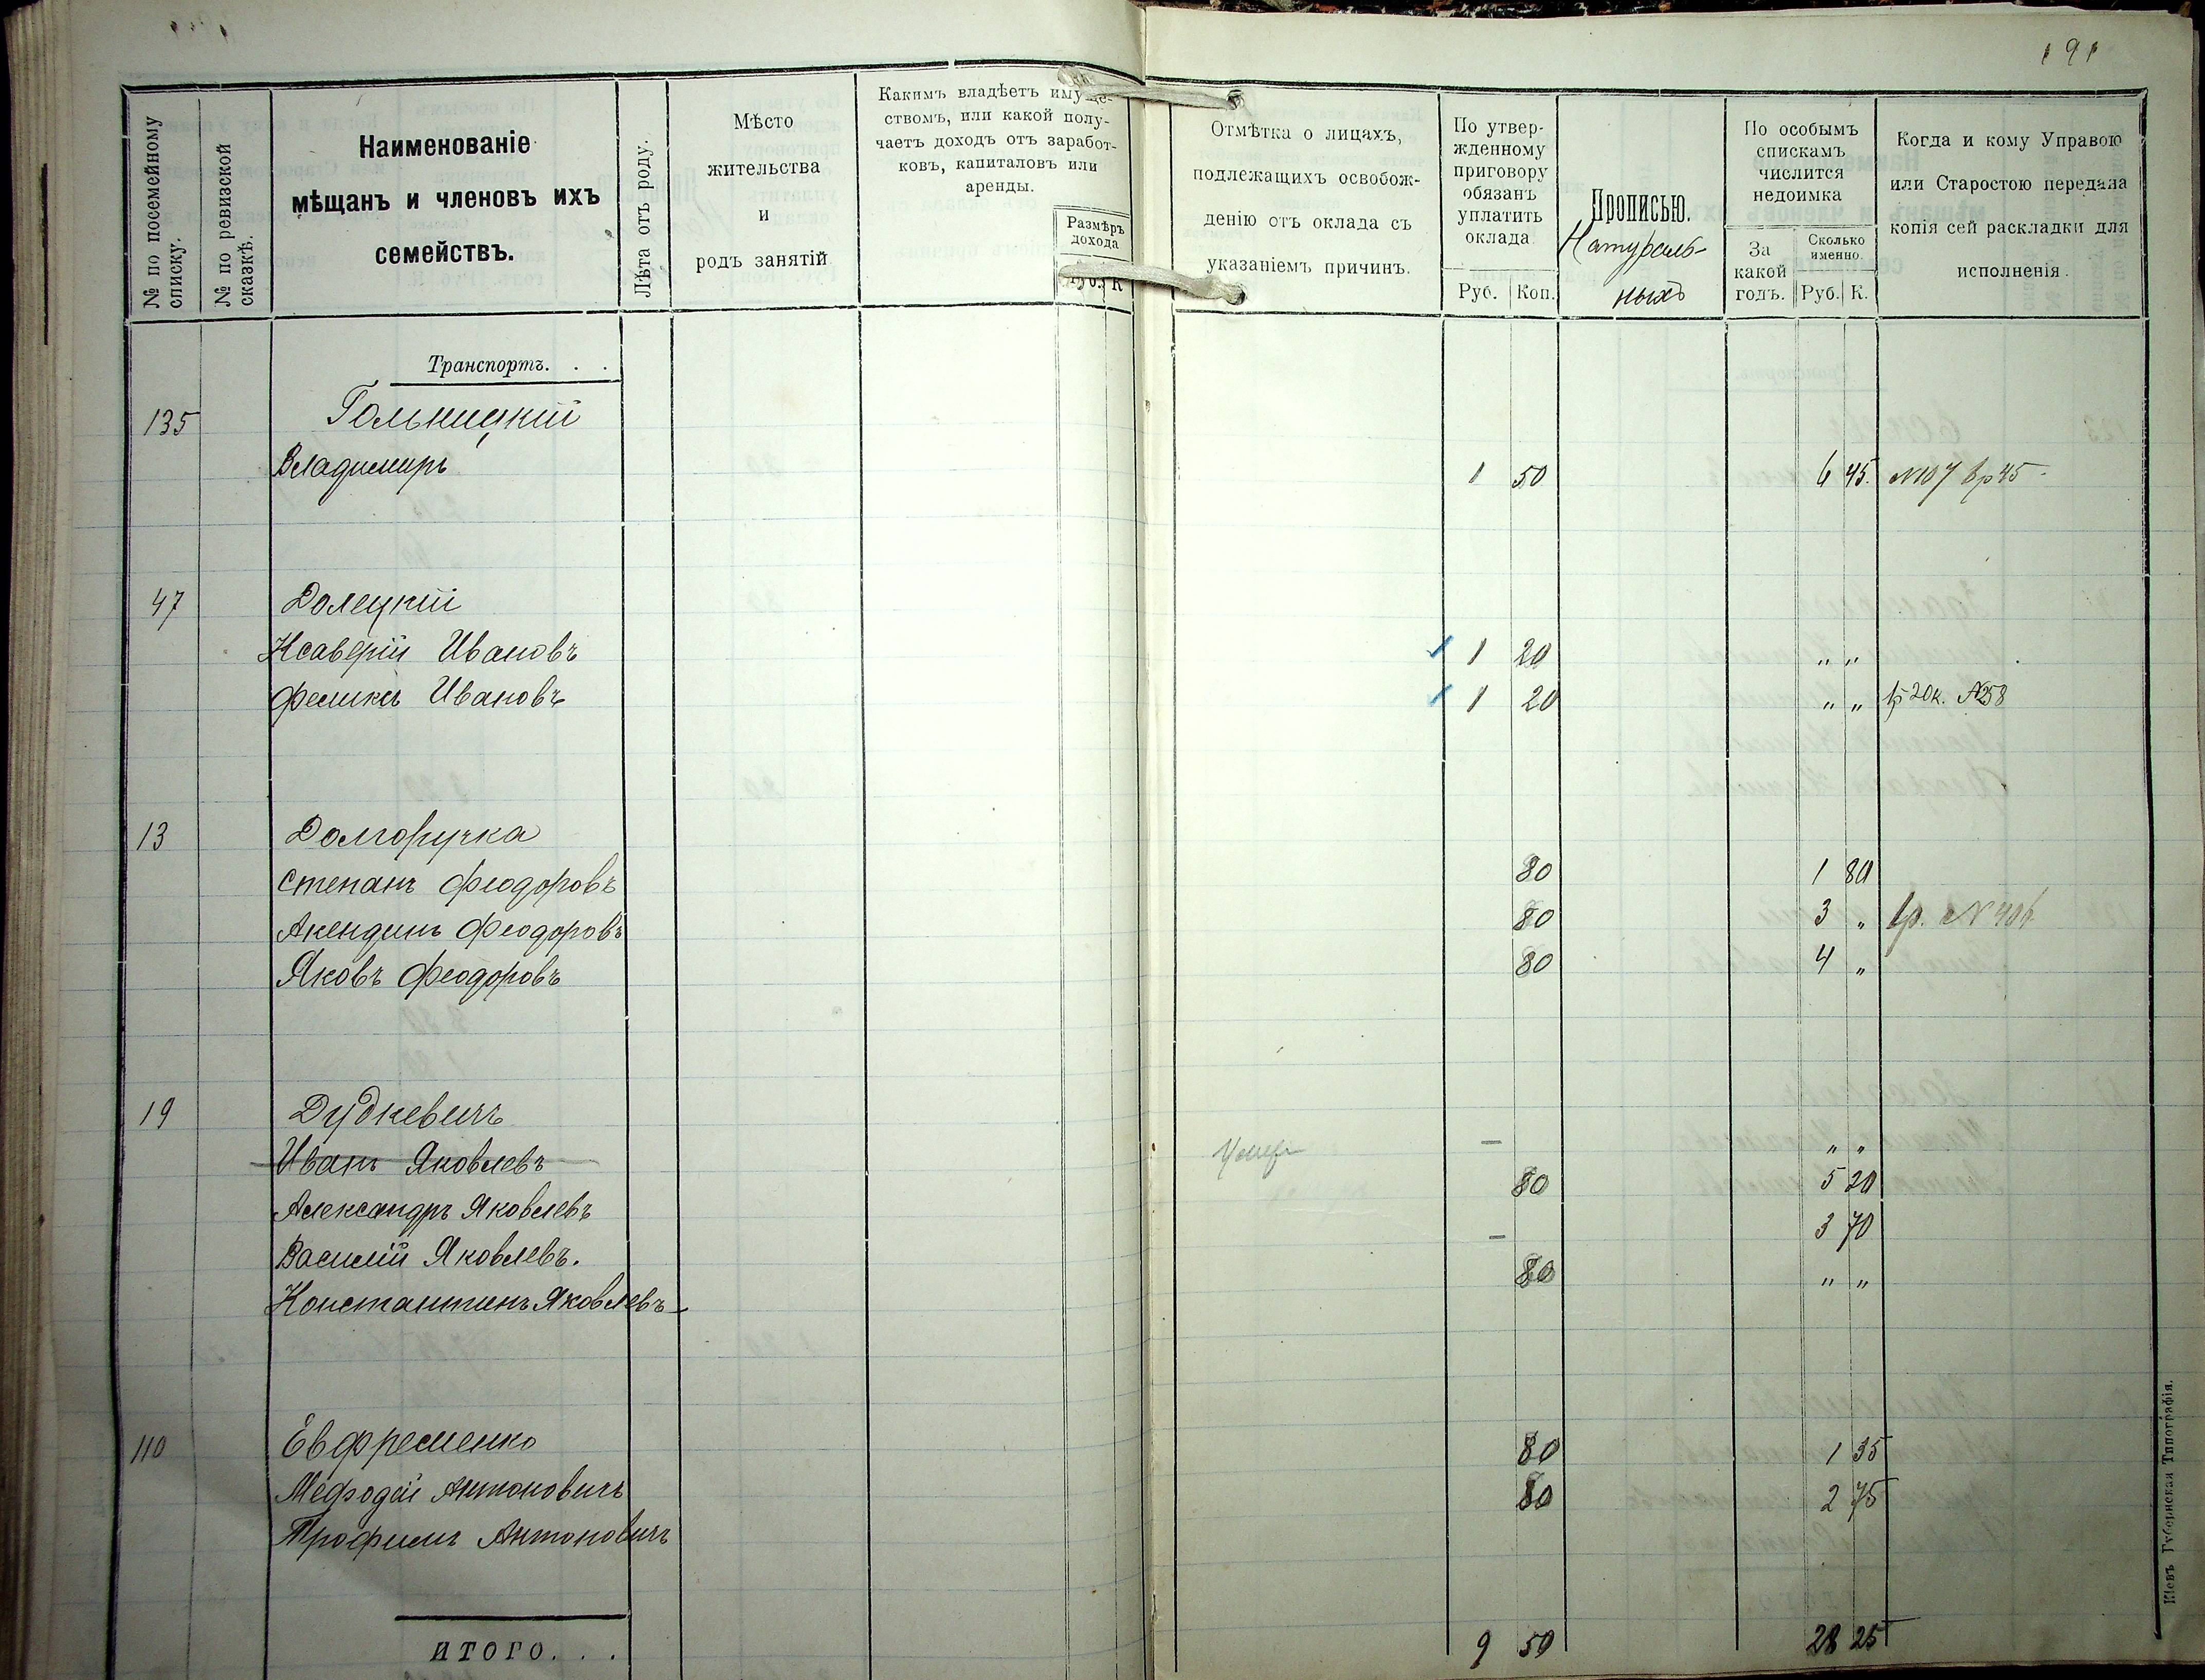 191
№ по посемейному списку.
№ по ревизской сказкѣ.
Наименованіе
мѣщанъ и членовъ ихъ
семействъ.
Лѣта отъ роду.
Мѣсто
жительства
и
родъ занятій
Какимъ владѣетъ имуще-
ствомъ, или какой полу-
чаетъ доходъ отъ заработ-
ковъ, капиталовъ или
аренды.
Размѣръ
дохода
Руб. К
Отмѣтка о лицахъ,
подлежащихъ освобож-
денію отъ оклада съ
указаніемъ причинъ.
По утвер-
жденному
приговору
обязанъ
уплатить
оклада
Руб. Коп.
Прописью.
Натураль-
ныхъ
По особымъ
спискамъ
числится
недоимка
За
какой
годъ.
Сколько
именно.
Руб. К.
Когда и кому Управою
или Старостою передана
копія сей раскладки для
исполненія.
Транспортъ. . .
135 Гольницкій
Владимиръ 1 50 6 45. №107 6р45
47 Долецкій
Ксаверій Ивановъ 1 20 " "
Феликсъ Ивановъ 1 20 " " 1р 20к. №258
13 Долгоручка
Степанъ Феодоровъ 80 1 80
Акендинъ Феодоровъ 80 3 "
Яковъ Феодоровъ 80 4 "
19 Дудкевичъ
Иванъ Яковлевъ Умеръ — " "
Александръ Яковлевъ 80 5 20
Василій Яковлевъ. — 3 70
Константинъ Яковлевъ 80 " "
110 Евфременко
Мефодій Антоновичъ 80 1 35
Трофимъ Антоновичъ 80 2 75
итого. . . 9 50 28 25
Кіевъ Губернская Типографія.